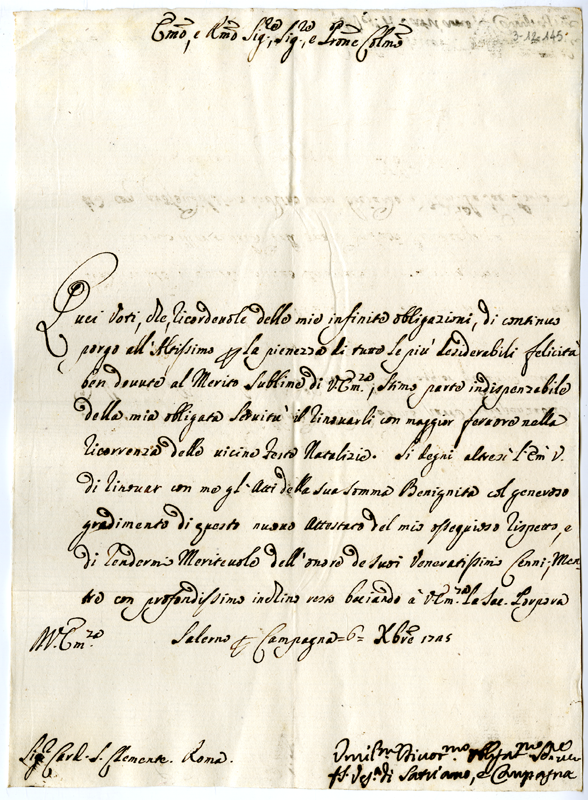 Em̃o, e Rm̃o Sig.re, Sig.re, e Prone Colm̃o
3-12-145
Quei Voti, che, ricordevole delle mie infinite obligazioni, di continuo
porgo all'Altissimo p la pienezza di tutte le più desiderabili felicità
ben dovute al Merito Sublime di V. Em.za, stimo parte indispenzabile
della mia obligata Servitù il rinovarli con maggior fervore nella
ricorrenza delle vicine Feste Natalizie. Si degni altresì l'Em.a V.
di rinovar con me gl'Atti della sua somma Benignità col generoso
gradimento di questo nuovo Attestato del mio ossequioso rispetto, e
di rendermi Meritevole dell'onore de suoi Veneratissimi Cenni; Men-
tre con profondissimo inchino resto baciando à V. Em.za la Sac. Porpora
Di V. Em.za Salerno p Campagna 6 Xbre 1725
Sig.r Card. S. Clemente. Roma.
Umil.mo Divot.mo obligat.mo Ser.re
Vesc.o di Satriano, e Campagna